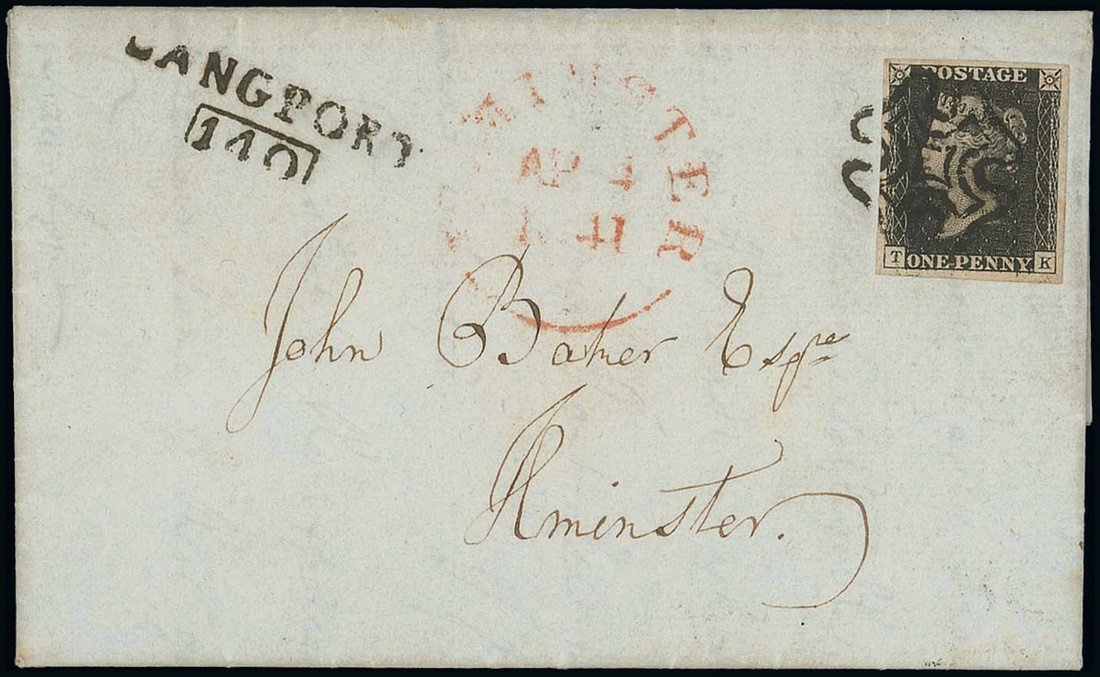 LANGPORT
140
MINSTER
AP 1
1841
POSTAGE
T ONE PENNY K
John Baker Esqre
Ilminster.